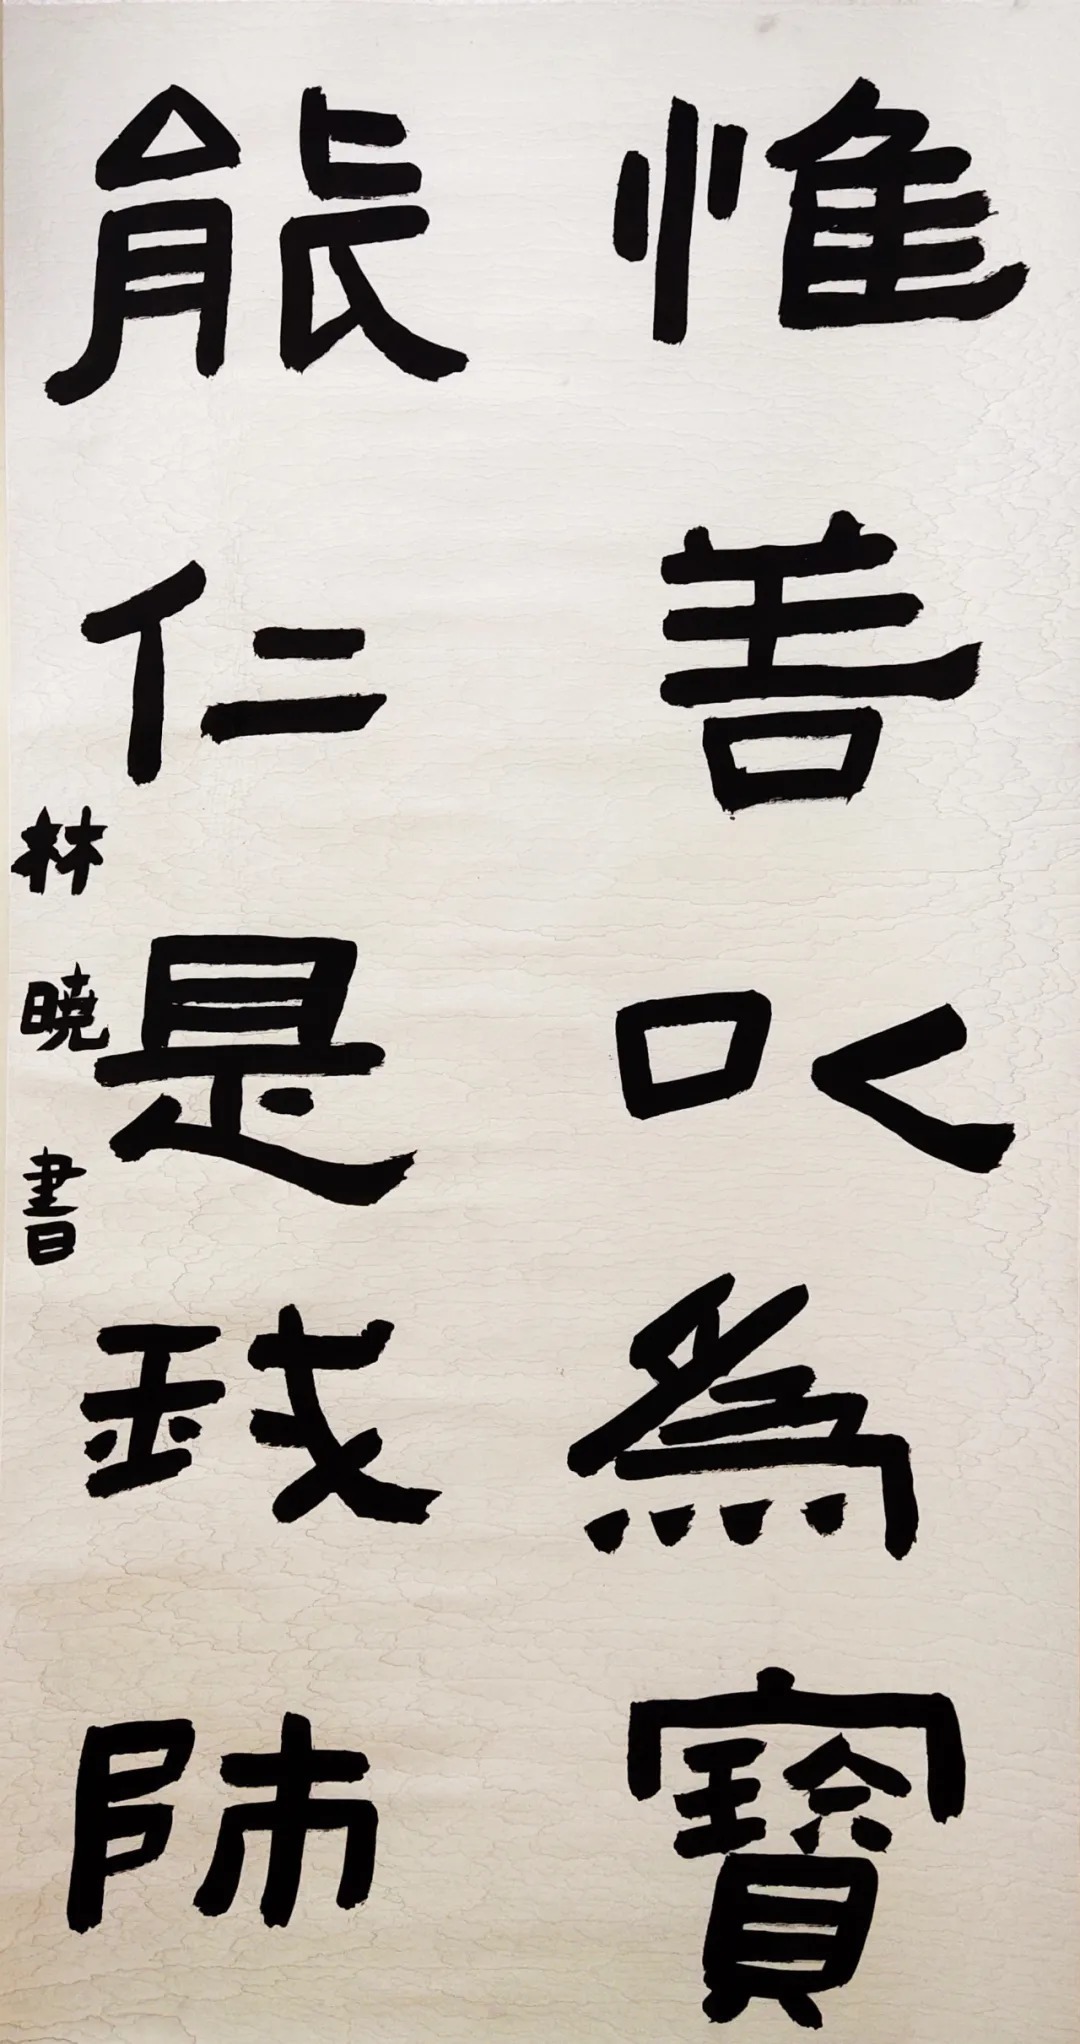 惟善以為寶
能仁是我師
林曉書